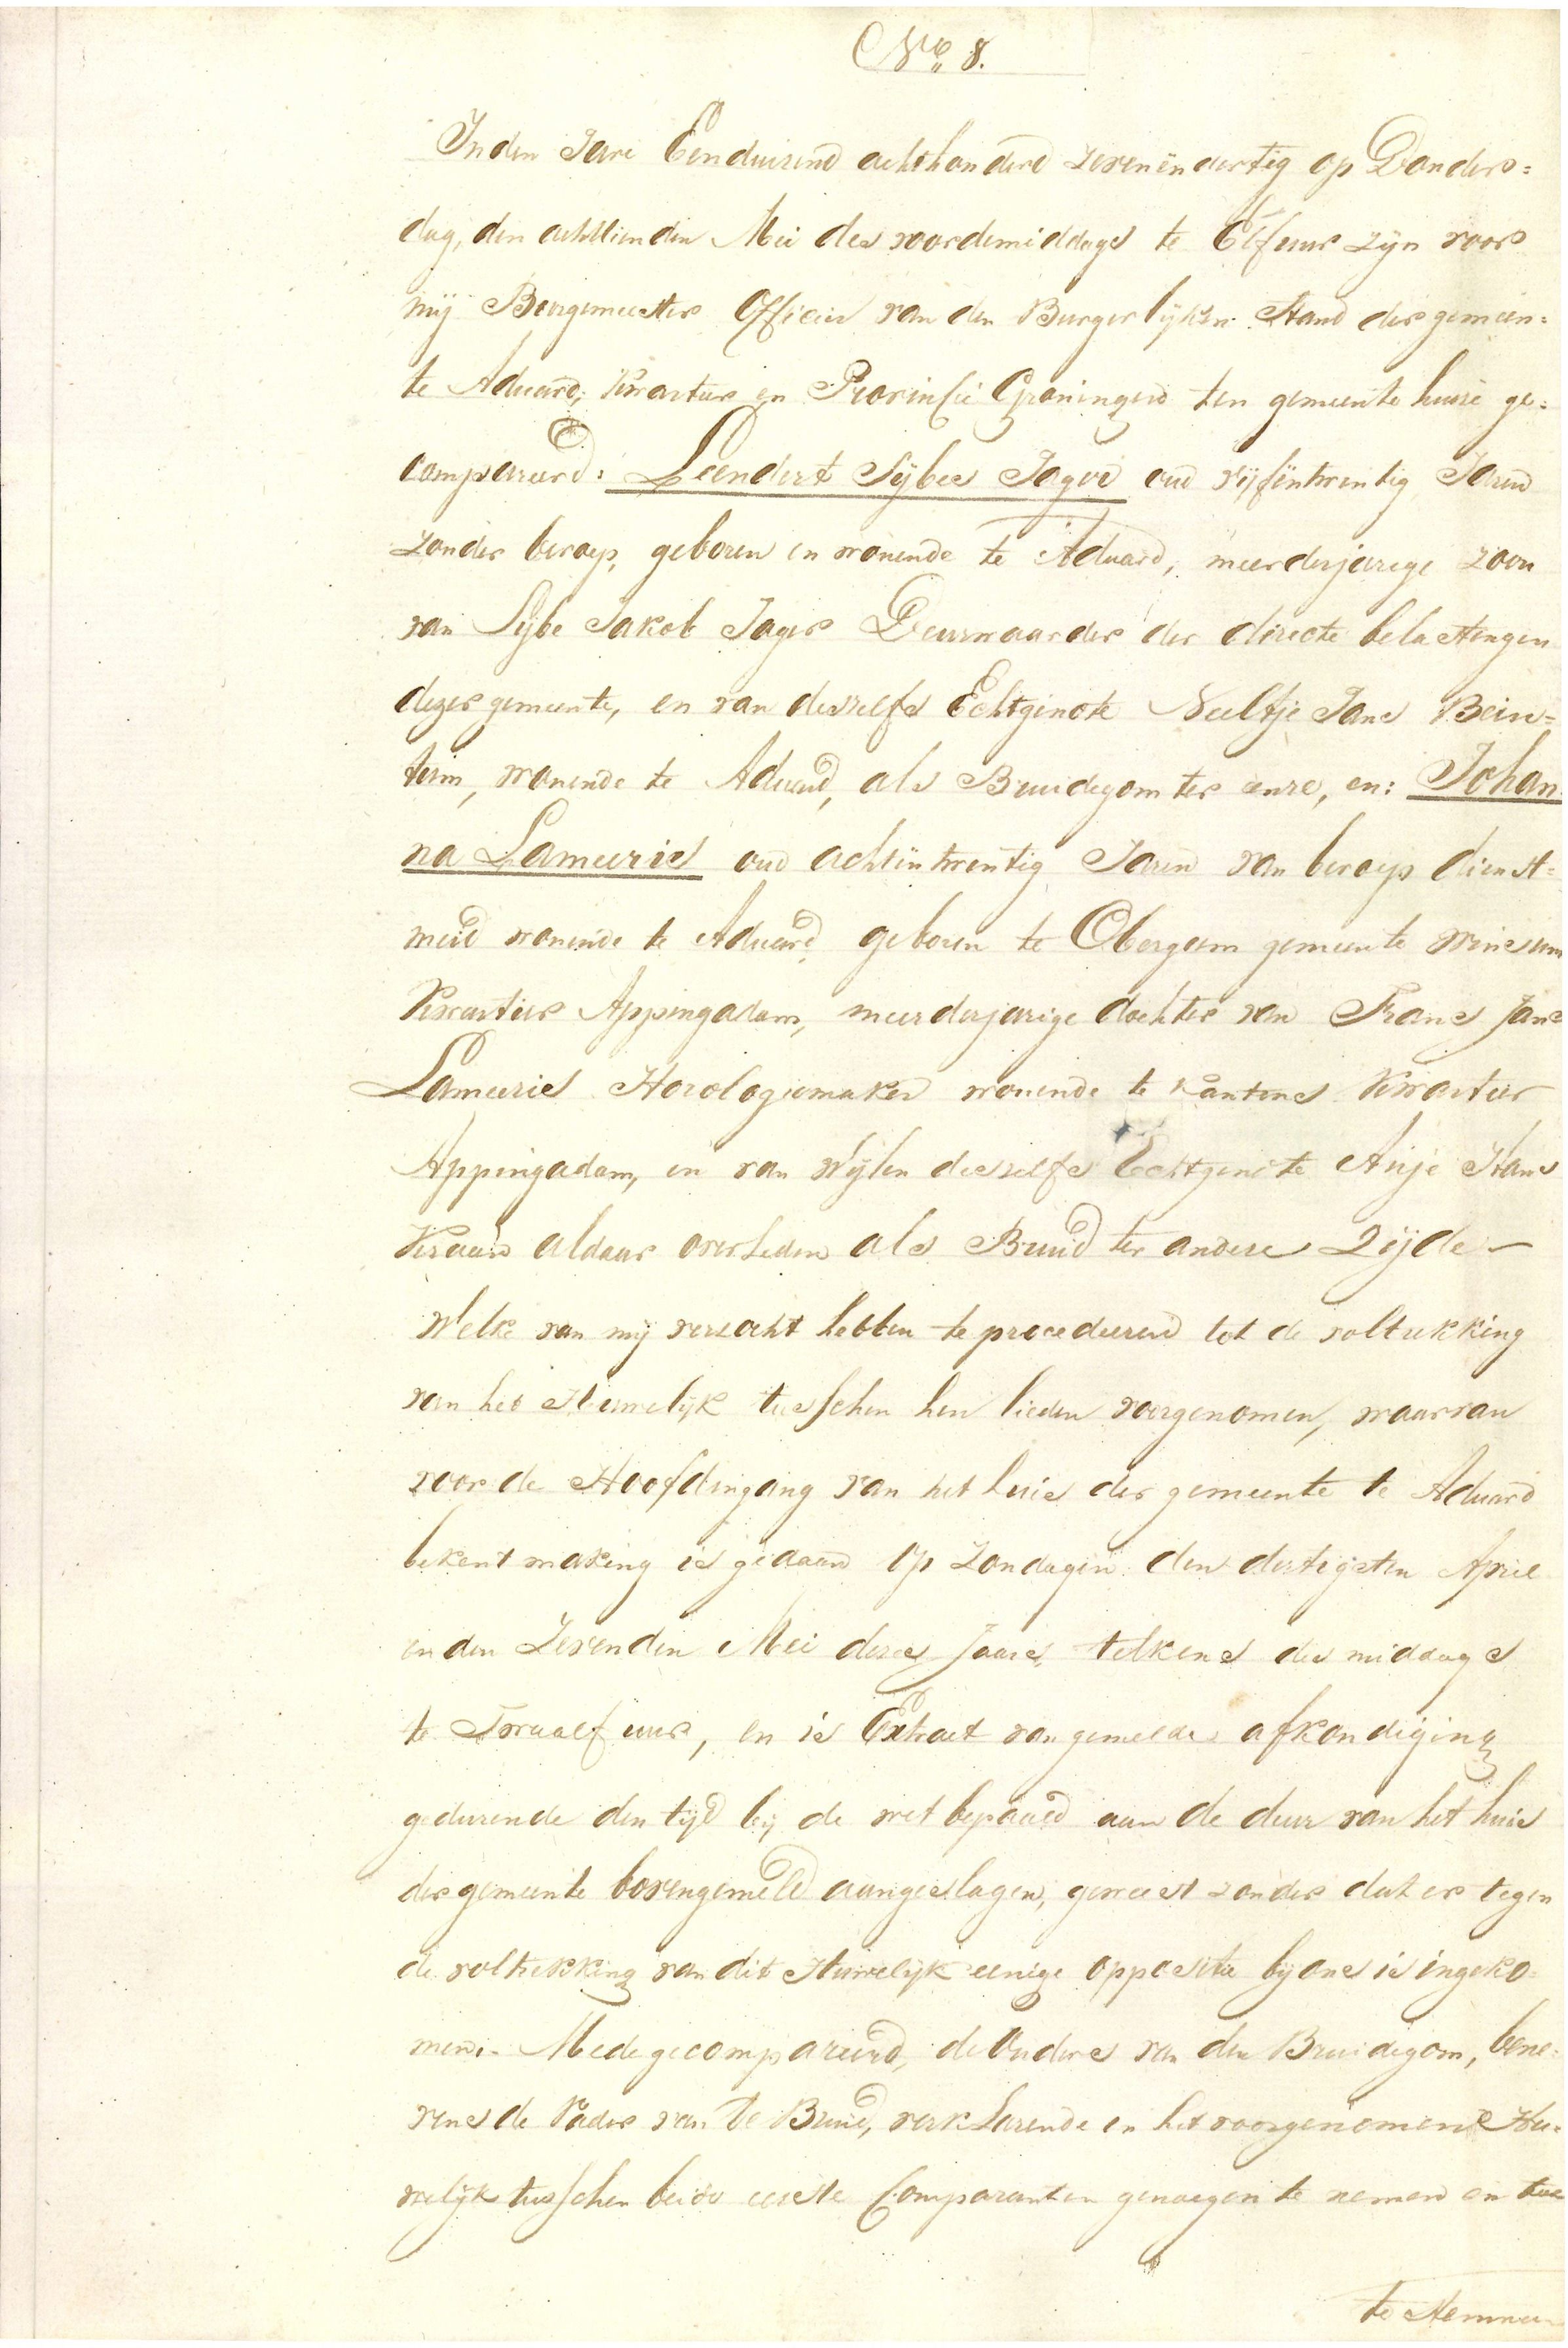 No. 8.
In den Jare Eenduizend achthonderd zevenëndertig op Donders=
dag, den achttienden Mei des voordemiddags te Elf uur zijn voor
mij Burgemeester Officier van den Burgerlijken Stand der gemeen=
te Aduard, Kwartier en Provinsie Groningen ten gemeente huise ge=
compareerd: Leendert Sijbes Jager oud vijfëntwentig Jaren
zonder beroep, geboren en wonende te Aduard, meerderjarige zoon
van Sijbe Jakob Jager Deurwaarder der directe belastingen
dezer gemeente, en van deszelfs Echtgenote Neeltje Jans Bein=
tem, wonende te Aduard, als Bruidegom ter eenre, en: Johan=
na Lameeris oud achtëntwentig Jaren van beroep dienst=
meid wonende te Aduard, geboren te Obergum gemeente Winsum
Kwartier Appingadam, meerderjarige dochter van Frans Jans
Lameeris Horologiemaker wonende te Kantens Kwartier
Appingadam, en van wijlen deszelfs Echtgenote Anje Hans
Kraan aldaar overleden als Bruid ter andere Zijde —
Welke van mij verzocht hebben te procedeeren tot de voltrekking
van het Huwelijk tusschen hen lieden voorgenomen, waarvan
voor de Hoofdingang van het huis der gemeente te Aduard
bekentmaking is gedaan op Zondagen den dertigsten April
en den Zevenden Mei dezes Jaars, telkens des middags
te Twaalf uur, en is Extract van gemelde afkondiging
gedurende den tijd bij de wet bepaald aan de deur van het huis
der gemeente bovengemeld aangeslagen, geweest zonder dat er tegen
de voltrekking van dit Huwelijk eenige oppositie bij ons is ingeko=
men. Mede gecompareerd, de Ouders van den Bruidegom, bene=
vens de Vader van de Bruid, verklarende in het voorgenomene Hu=
welijk tusschen beide eerste Comparanten genoegen te nemen en toe
te stemmen